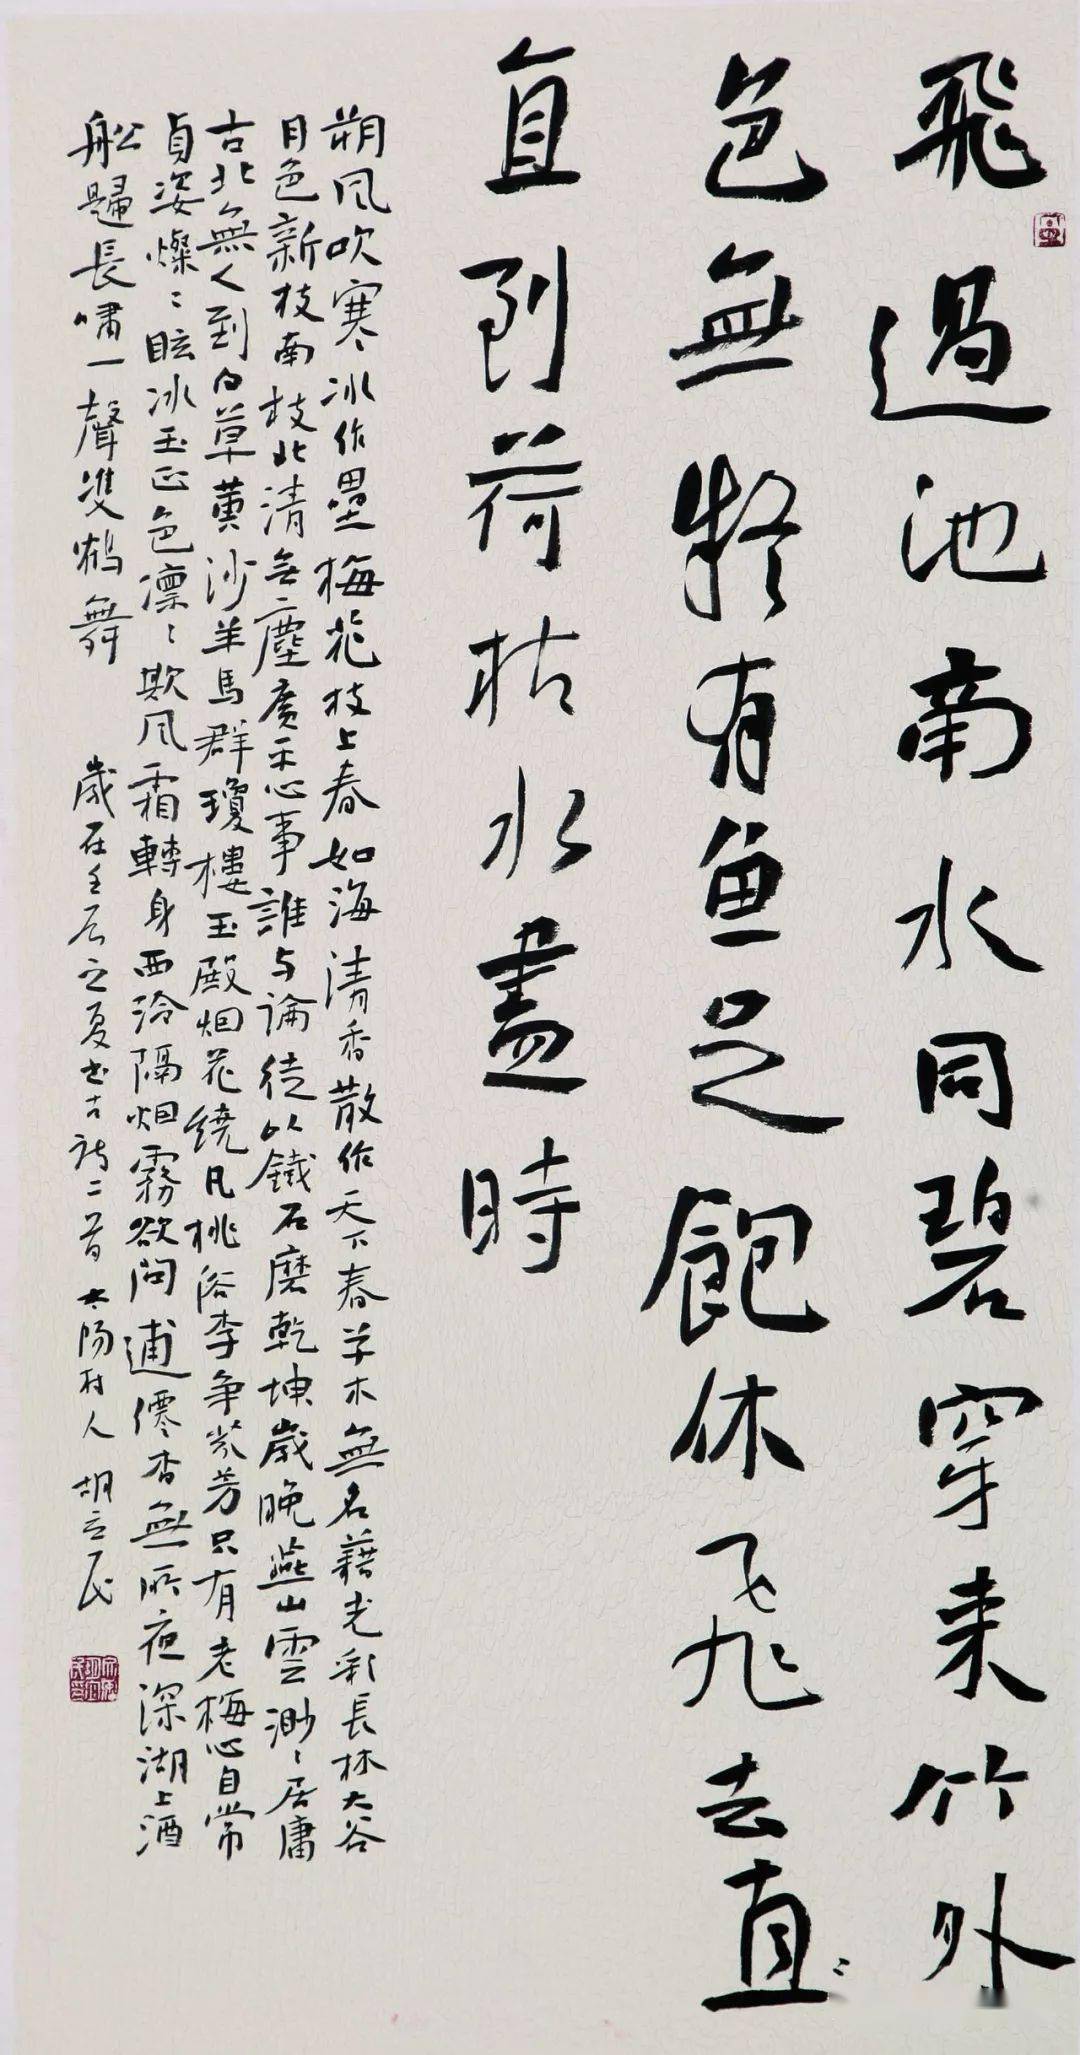 飛過池南水同碧穿来竹外
色無疑有魚足飽休飛去直
直到荷枯水盡時
朔风吹寒冰作壘梅花枝上春如海清香散作天下春草木無名藉光彩長林大谷
月色新枝南枝北清無塵廣平心事誰与論徒以鐵石磨乾坤歲晚燕山雲渺〻居庸
古北無人到白草黄沙羊馬群瓊樓玉殿烟花繞凡桃俗李争芬芳只有老梅心自常
貞姿燦〻眩冰玉正色凛〻欺风霜轉身西泠隔烟霧欲問逋僊杳無所夜深湖上酒
船歸長嘯一聲雙鶴舞 歲在壬辰之夏书古诗二首 太陽村人 胡立民